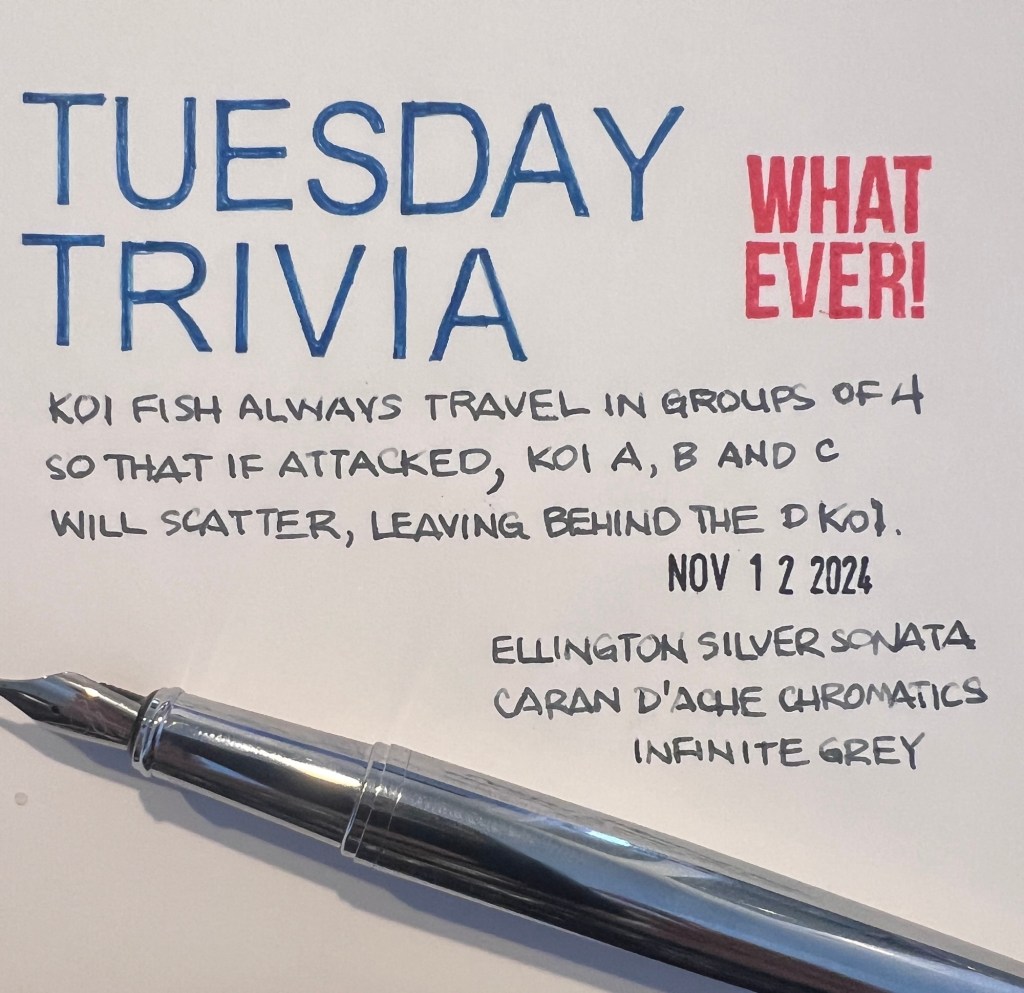 TUESDAY
TRIVIA
WHAT
EVER!
KOI FISH ALWAYS TRAVEL IN GROUPS OF 4
SO THAT IF ATTACKED, KOI A, B AND C
WILL SCATTER, LEAVING BEHIND THE D KOI.
NOV 12 2024
ELLINGTON SILVER SONATA
CARAN D'ACHE CHROMATICS
INFINITE GREY